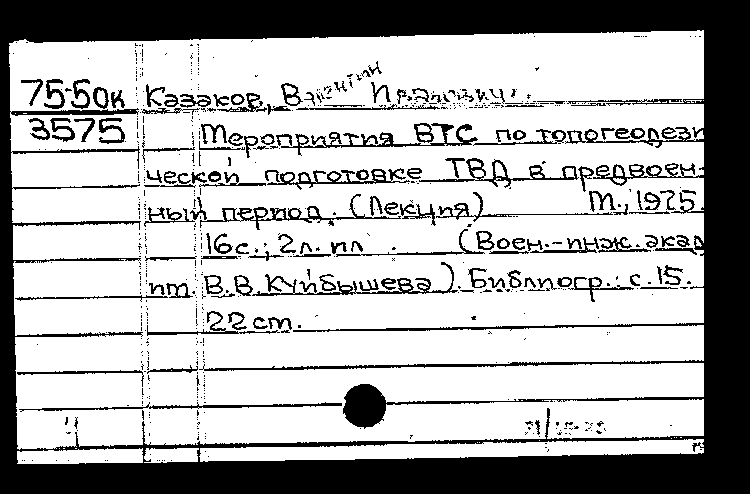 75-50к Казаков, Валентин Иванович.
3575 Мероприятия ВТС по топогеодези
ческой подготовке ТВД в предвоен-
ный период. (Лекция) М., 1975.
16с.; 2л. ил. (Воен.-инж. акад
им. В.В. Куйбышева). Библиогр.: с. 15.
22 cm.
Ч